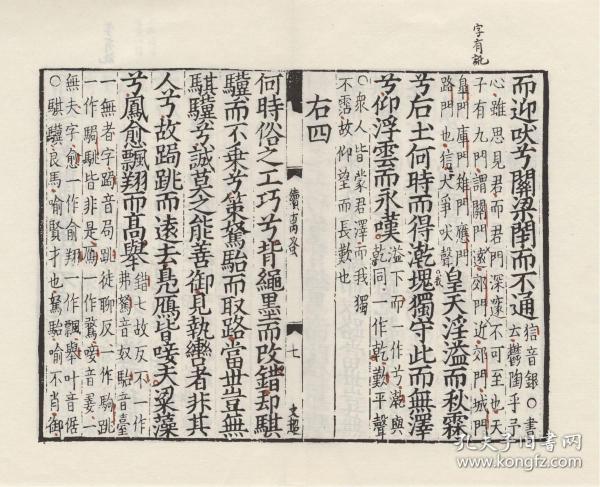 字有訛
而迎吠兮關梁閉而不通狺音銀○書
云鬱陶乎予
心雖思見君而君門深邃不可至也天
子有九門謂關門遠郊門近郊門城門
皐門庫門雉門應門
路門也狺犬爭吠聲
皇天淫溢而秋霖
兮后土何時而得漧塊獨守此而無澤
兮仰浮雲而永歎溢下而一作兮漧與
乾同一作乾歎平聲
○衆人皆蒙君澤而我獨
不霑故仰望而長歎也
右四
七
何時俗之工巧兮背繩墨而改錯却騏
驥而不乗兮策駑駘而取路當世豈無
騏驥兮誠莫之能善御見執轡者非其
人兮故跼跳而遠去鳧鴈皆唼夫粱藻
兮鳳愈飄翔而高舉錯七故反不一作
弗駑音奴駘音臺
一無者字跼音局跳徒聊反一作駒跳
一作駶駣皆非是鴈一作鶩唼音翣一
無夫字愈一作俞翔一作飄舉叶音倨
○騏驥良馬喻賢才也駑駘喻不肖御
孔夫子旧书网
www.kongfz.com